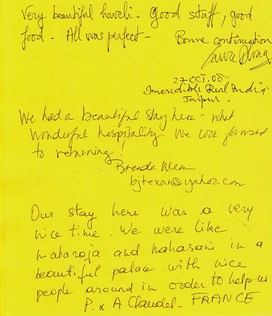 Very beautiful haveli - Good staff, good
food - All was perfect -
Bonne continuation
27 OCT. 08
Incredible Real India
Jaipur.
We had a beautiful stay here - what
wonderful hospitality. We look forward
to returning!
Brenda
bjtexan@yahoo.com
Our stay here was a very
nice time. We were like
maharaja and maharani in a
beautiful palace with nice
people around in order to help us
P. x A Claudel - FRANCE